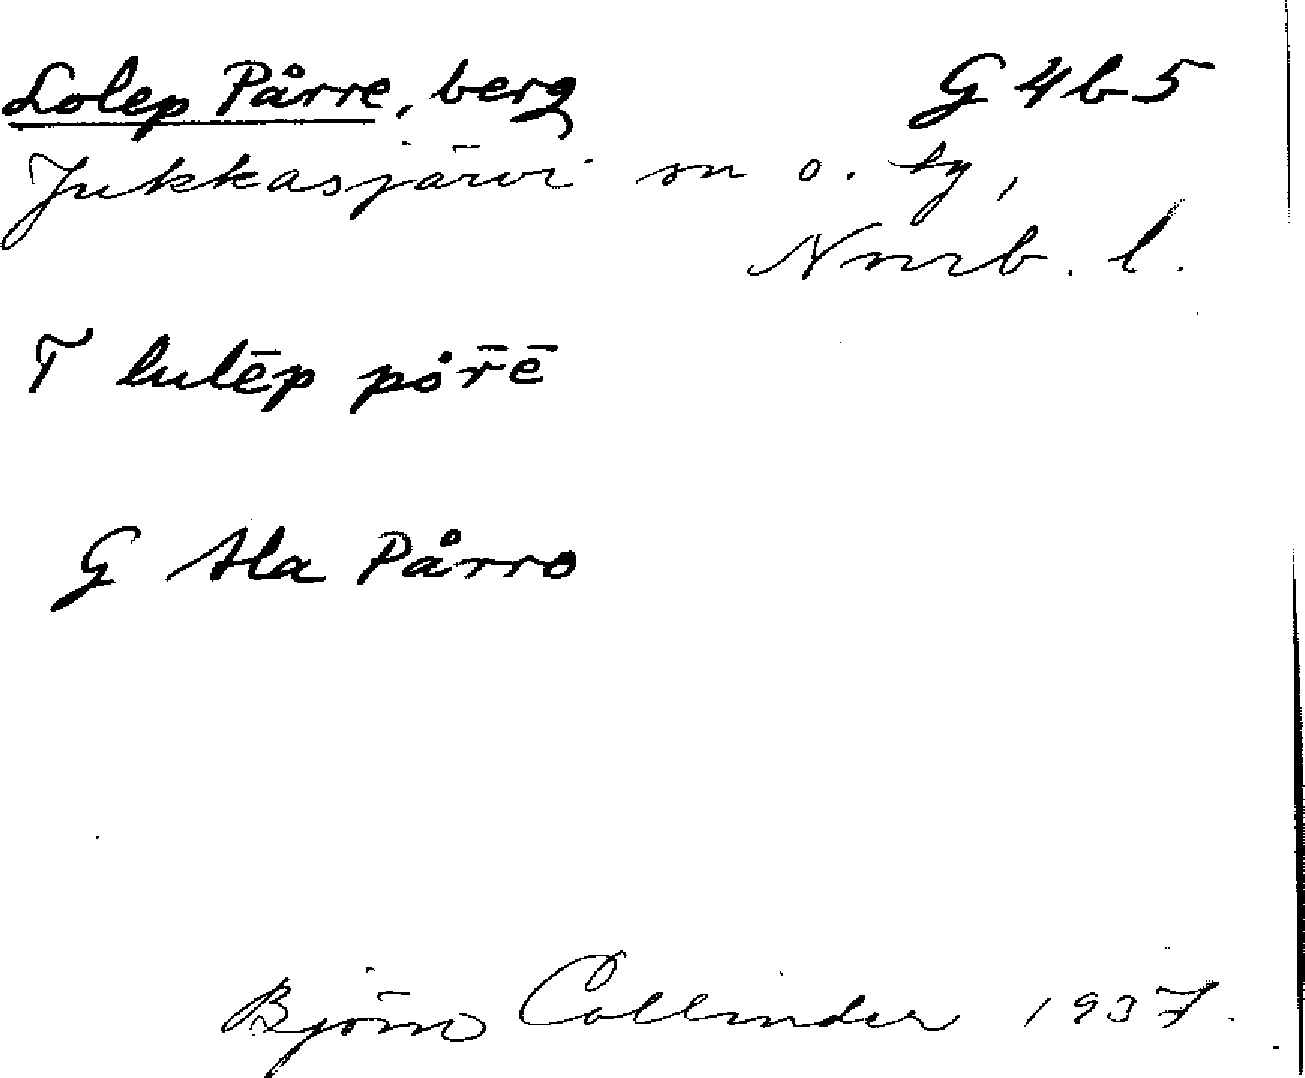 Lolep Pårre, berg G4b5
Jukkasjärvi sn o. tg,
Norrb. l.
T lulēp pår̄ē
G Ala Pårro
Björn Collinder 1937.